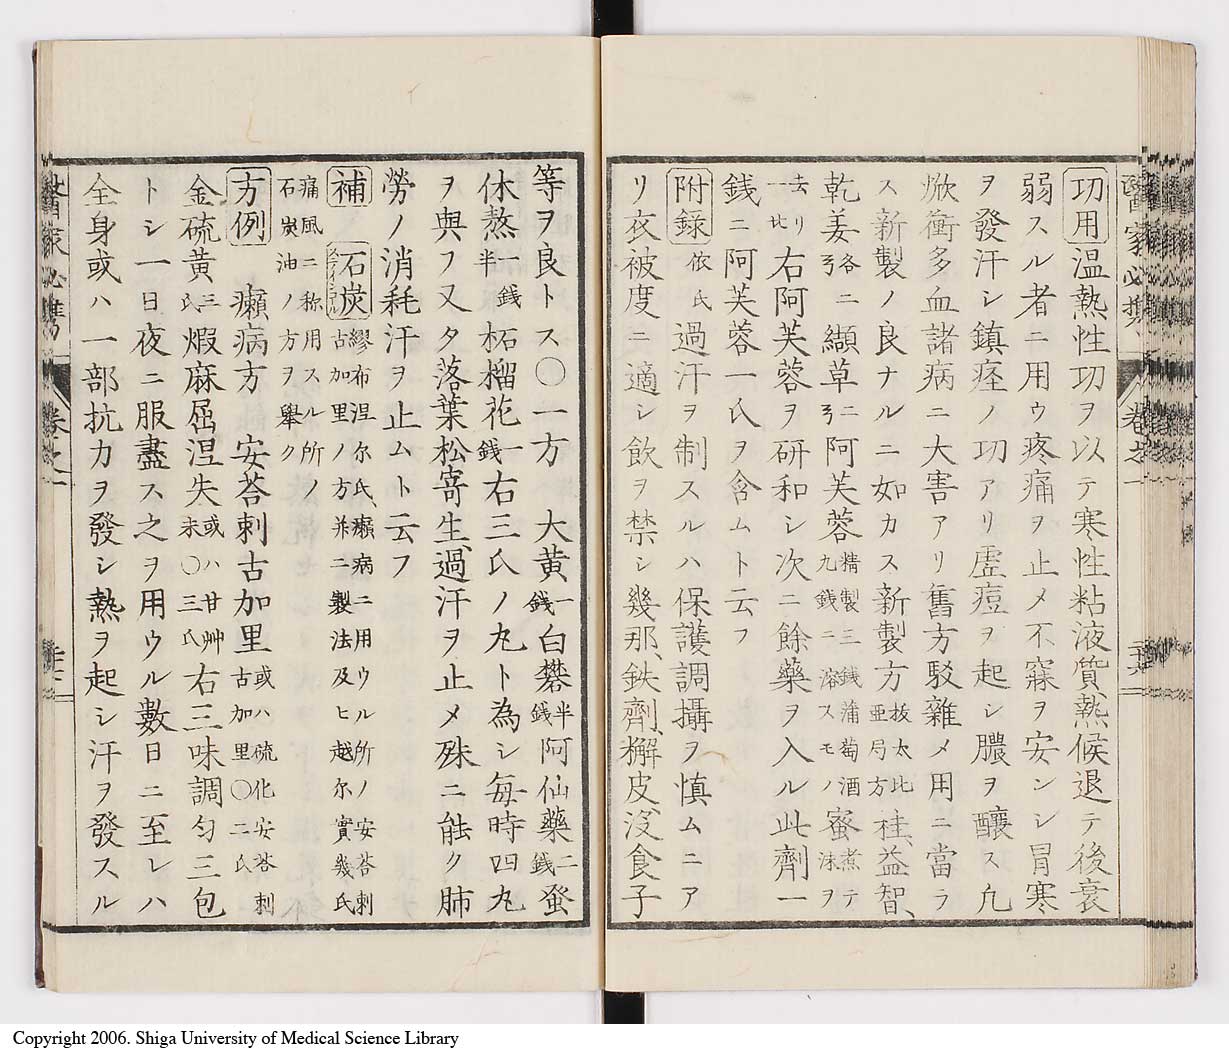 醫家必携 卷之一
功用 温熱性功ヲ以テ寒性粘液質熱候退テ後衰
弱スル者ニ用ウ疼痛ヲ止メ不寐ヲ安ンシ冒寒
ヲ發汗シ鎮痙ノ功アリ虚痘ヲ起シ膿ヲ釀ス凢
焮衝多血諸病ニ大害アリ舊方駁雜メ用ニ當ラ
ス新製ノ良ナルニ如カス新製方 抜太比亜局方 桂、益智、
乾姜 各二弓 纈草 二弓 阿芙蓉 精製三錢蒲萄酒九錢ニ溶スモノ 蜜 煮テ沫ヲ
去リ一比 右阿芙蓉ヲ研和シ次ニ餘藥ヲ入ル此劑一
錢ニ阿芙蓉一氏ヲ含ムト云フ
附錄 依氏 過汗ヲ制スルハ保護調攝ヲ慎ムニア
リ衣被度ニ適シ飲ヲ禁シ幾那、鉄劑、檞皮、没食子
等ヲ良トス〇一方 大黄 一錢 白礬 半錢 阿仙藥 二錢 蛩
休熬 一錢半 柘榴花 一錢 右三氏ノ丸ト為シ毎時四丸
ヲ與フ又タ落葉松寄生、過汗ヲ止メ殊ニ能ク肺
勞ノ消耗汗ヲ止ムト云フ
補 石炭 ステインコール 繆布涅尓氏、癩病ニ用ウル所ノ安荅刺古加里ノ方并ニ製法及ヒ越尓實幾氏
痛風ニ称用スル所ノ石炭油ノ方ヲ擧ク
方例 癩病方 安荅刺古加里 或ハ硫化安荅刺古加里〇二氏
金硫黄 三氏 煆麻屈涅失 或ハ甘艸末〇三氏 右三味調匀三包
トシ一日夜ニ服盡ス之ヲ用ウル數日ニ至レハ
全身或ハ一部抗力ヲ發シ熱ヲ起シ汗ヲ發スル
醫家必携 卷之一
Copyright 2006. Shiga University of Medical Science Library